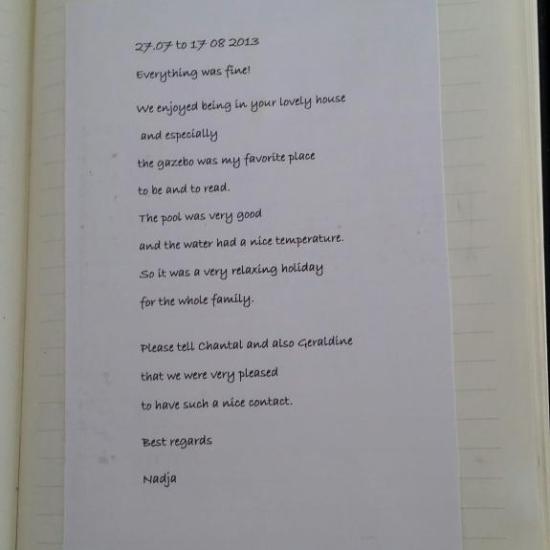 27.07 to 17 08 2013
Everything was fine!
We enjoyed being in your lovely house
and especially
the gazebo was my favorite place
to be and to read.
The pool was very good
and the water had a nice temperature.
So it was a very relaxing holiday
for the whole family.
Please tell Chantal and also Geraldine
that we were very pleased
to have such a nice contact.
Best regards
Nadja